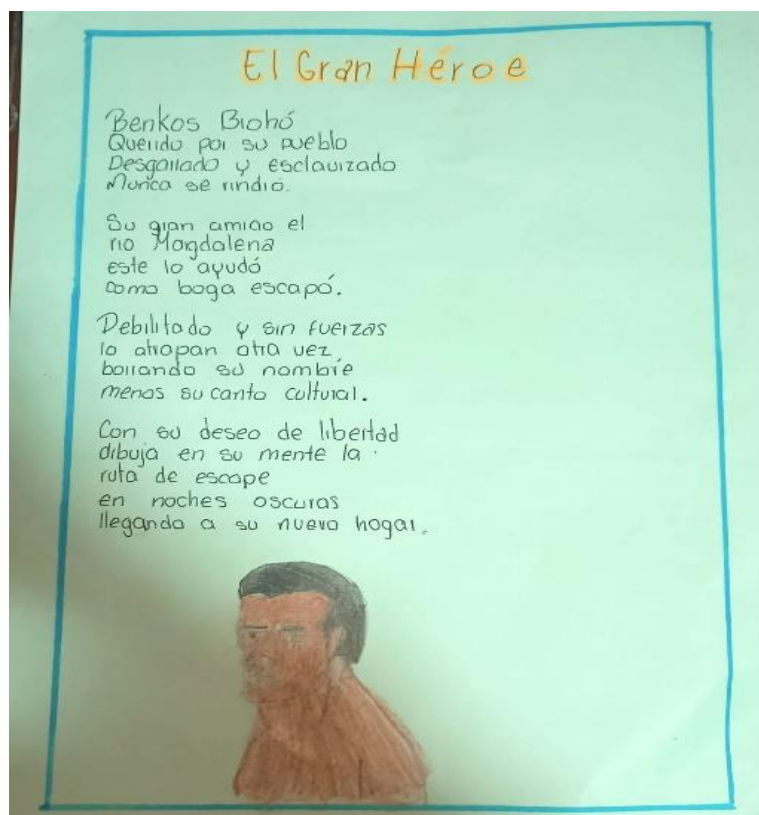 El Gran Héroe
Benkos Biohó
Querido por su pueblo
Desgarrado y esclavizado
Nunca se rindió.
Su gran amigo el
rio Magdalena
este lo ayudó
como boga escapó.
Debilitado y sin fuerzas
lo atrapan otra vez,
borrando su nombre
menos su canto cultural.
Con su deseo de libertad
dibuja en su mente la
ruta de escape
en noches oscuras
llegando a su nuevo hogar.